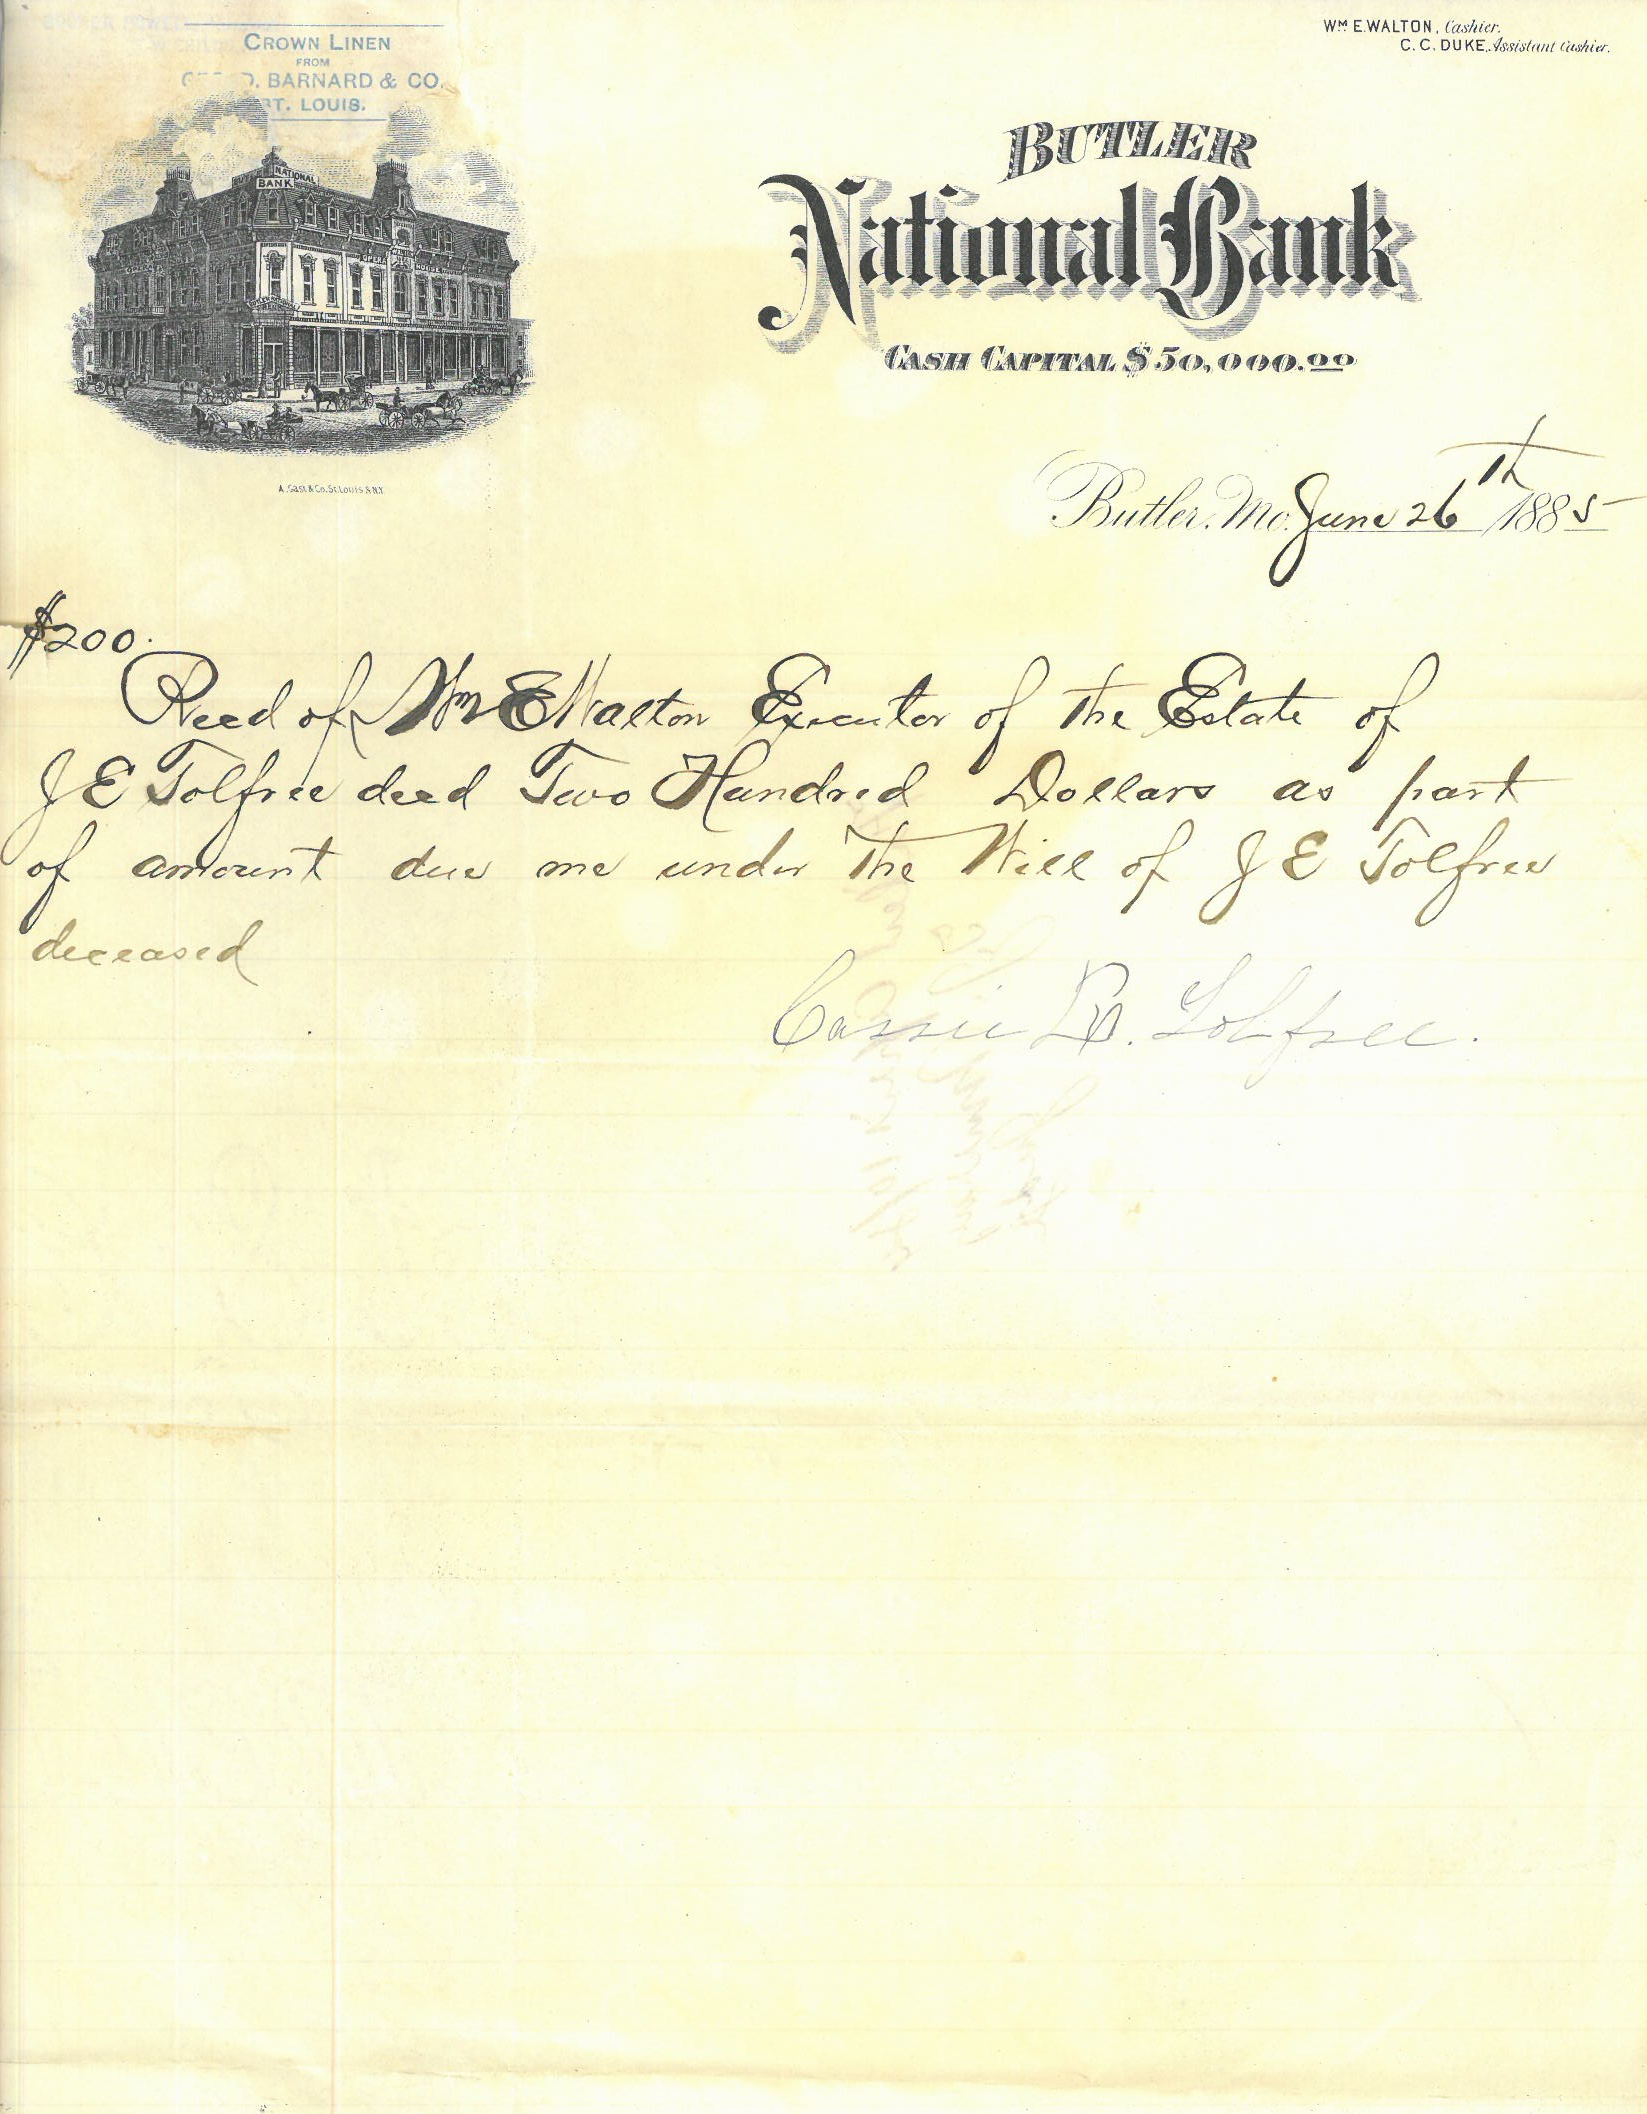 CROWN LINEN
FROM
D. BARNARD & CO.
ST. LOUIS.
WM E. WALTON, Cashier.
C. C. DUKE, Assistant Cashier.
NATIONAL
BANK
OPERA HOUSE
A. Gast & Co. St. Louis & N.Y.
BUTLER
National Bank
CASH CAPITAL $50,000.00
Butler, Mo. June 26th 1885
$200.
Recd of Wm E Walton Executor of the Estate of
J E Tolfree decd Two Hundred Dollars as part
of amount due me under the Will of J E Tolfree
deceased
Cassie B. Tolfree.